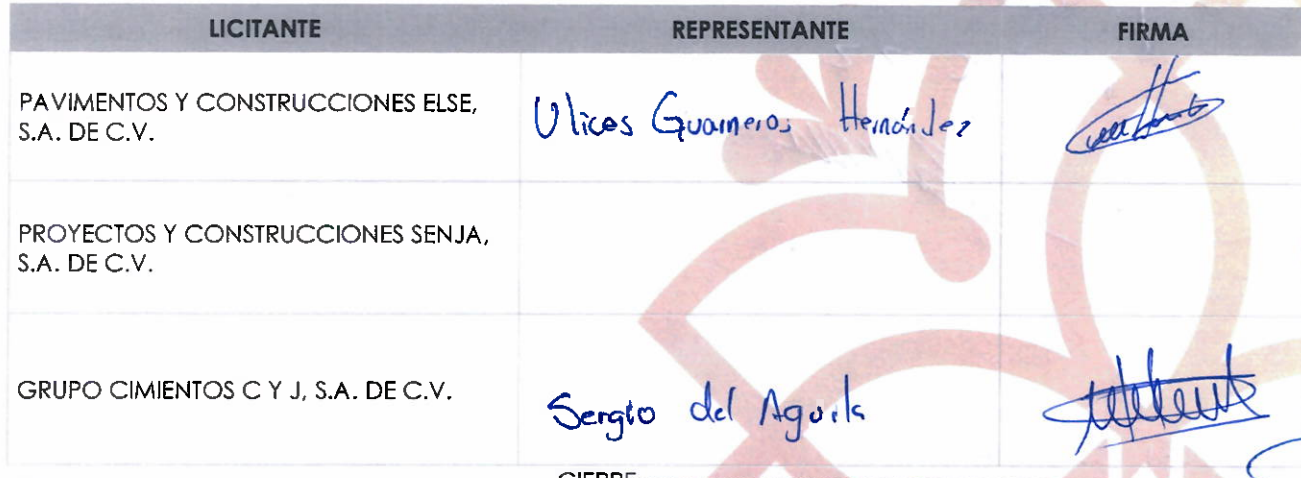 LICITANTE REPRESENTANTE FIRMA
PAVIMENTOS Y CONSTRUCCIONES ELSE,
S.A. DE C.V.
Ulices Guarneros Hernández
PROYECTOS Y CONSTRUCCIONES SENJA,
S.A. DE C.V.
GRUPO CIMIENTOS C Y J, S.A. DE C.V.
Sergio del Aguila
CIERRE